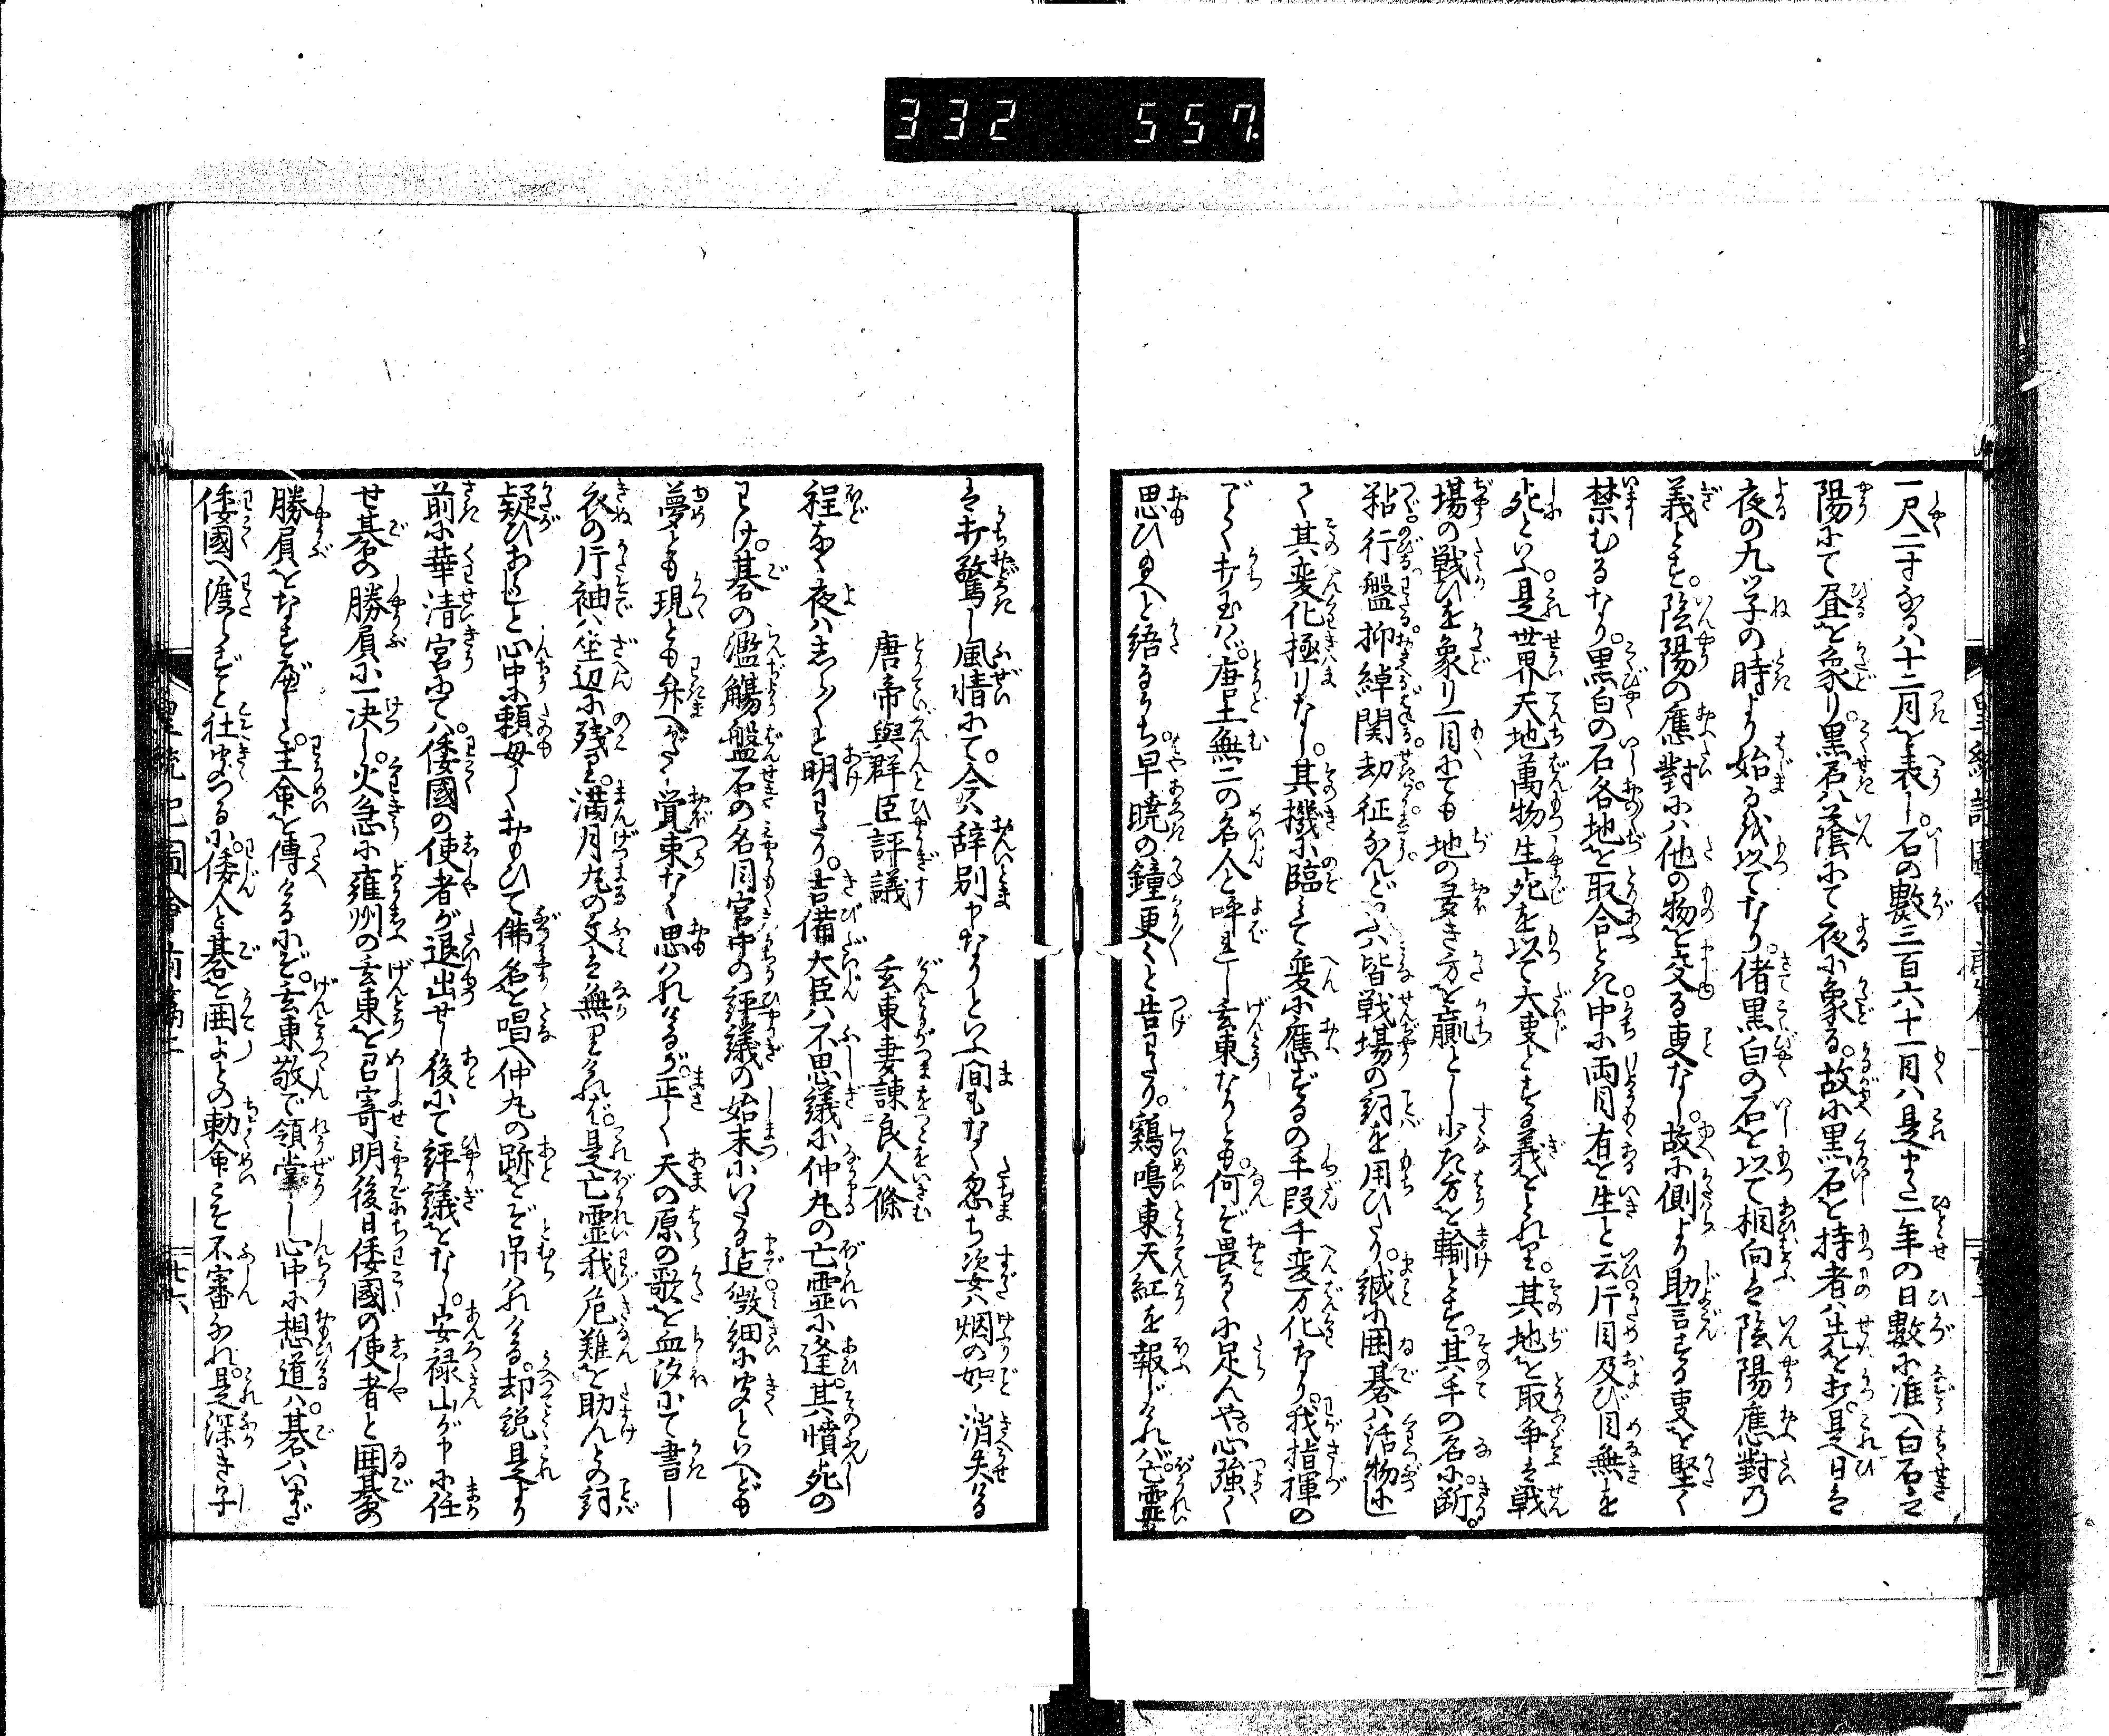 332 557
一尺二寸なるハ十二月を表し。石の数三百六十一目ハ是また一年の日数に准へ白石は
陽にて昼を象り。黒石ハ蔭にて夜に象る。故に黒石を持者ハ先を打。是日は
夜の九ツ子の時より始る を以てなり。偖黒白の石を以て相向は陰陽應對乃
義とす。陰陽の應對にハ他の物を交る事なし。故に側より助言する事を堅く
禁むるなり。黒白の石各地を取合とき中に両目有を生と云片目及び目無を
死といふ。是世界天地萬物生死を以て大事とする義をとれり。其地を取争は戦
場の戦ひを象り一目にても地の多き方を贏とし少き方を輸とす。其手の名に。断。
粘行盤抑綽関刧征なんどいふハ皆戦場の詞を用ひたり。誠に囲碁ハ活物に
て其変化極りなし。其機に臨みて変に應ずるの手段千変万化なり。我指揮の
ごとく打玉はゞ。唐土無二の名人と呼れし玄東なりとも。何ぞ畏るゝに足んや。心強く
思ひ玉へと語るうち。早暁の鐘更々と告わたり。鶏鳴東天紅を報じければ。亡霊
は打驚し風情にて。今ハ辞別申なりといふ間もなく忽ち姿ハ烟の如く消失ける
唐帝與群臣評議 玄東妻諫良人條
程なく夜ハしら〳〵と明わたり。吉備大臣ハ不思議に仲丸の亡霊に逢。其憤死の
わけ。碁の濫觴盤石の名目宮中の評議の始末にいたる迄。微細に聞といへども
夢とも現とも弁へがたく覚束なく思ハれけるが。正しく天の原の歌を血汐にて書し
衣の片袖ハ坐辺に残り。満月丸の文は無りけれバ。是亡霊我危難を助んとの詞
疑ひあらじと心中に頼母しくおもひて佛名を唱へ仲丸の跡をぞ吊ハれける。却説是より
前に華清宮にてハ。倭國の使者が退出せし後にて評議をなし。安禄山が申に任
せ碁の勝負に一决し。火急に雍州の玄東を召寄明後日倭國の使者と囲碁の
勝負をなすべしと。主命を傳へけるにぞ。玄東敬で領掌し心中に想道ハ。碁ハいまだ
倭國へ渡らずと社聞つるに。倭人と碁を囲よとの勅命こそ不審なれ。是深き子
皇統記圖會前篇二 廿六